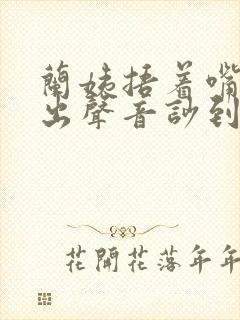 蘭姨捂着嘴
出聲音訬到
花開花落年年